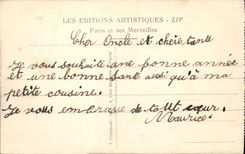 LES EDITIONS ARTISTIQUES - LIP
Paris et ses Merveilles
Cher Oncle et chère tante
Je vous souhaite une bonne année
et une bonne santé ainsi qu'à ma
petite cousine.
Je vous embrasse de tout cœur.
Maurice